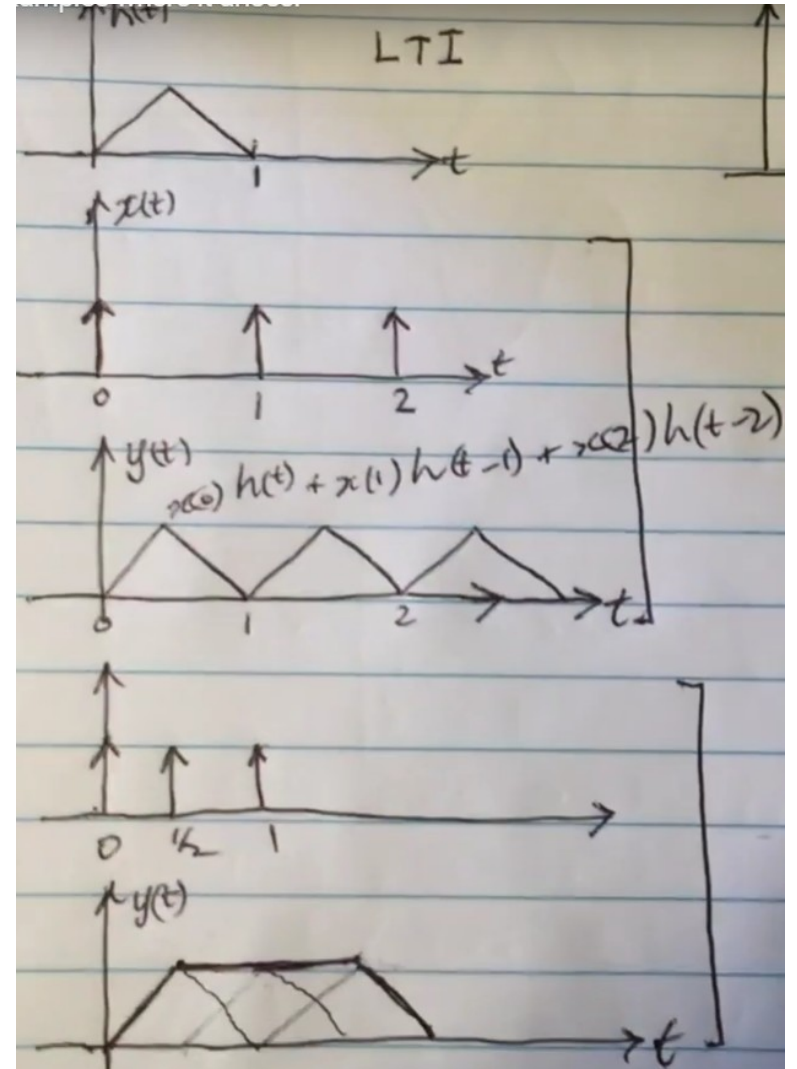 h(t)
LTI
1
t
x(t)
t
0 1 2
y(t)
x(0) h(t) + x(1) h(t-1) + x(2) h(t-2)
0 1 2
t
0 1/2 1
y(t)
t